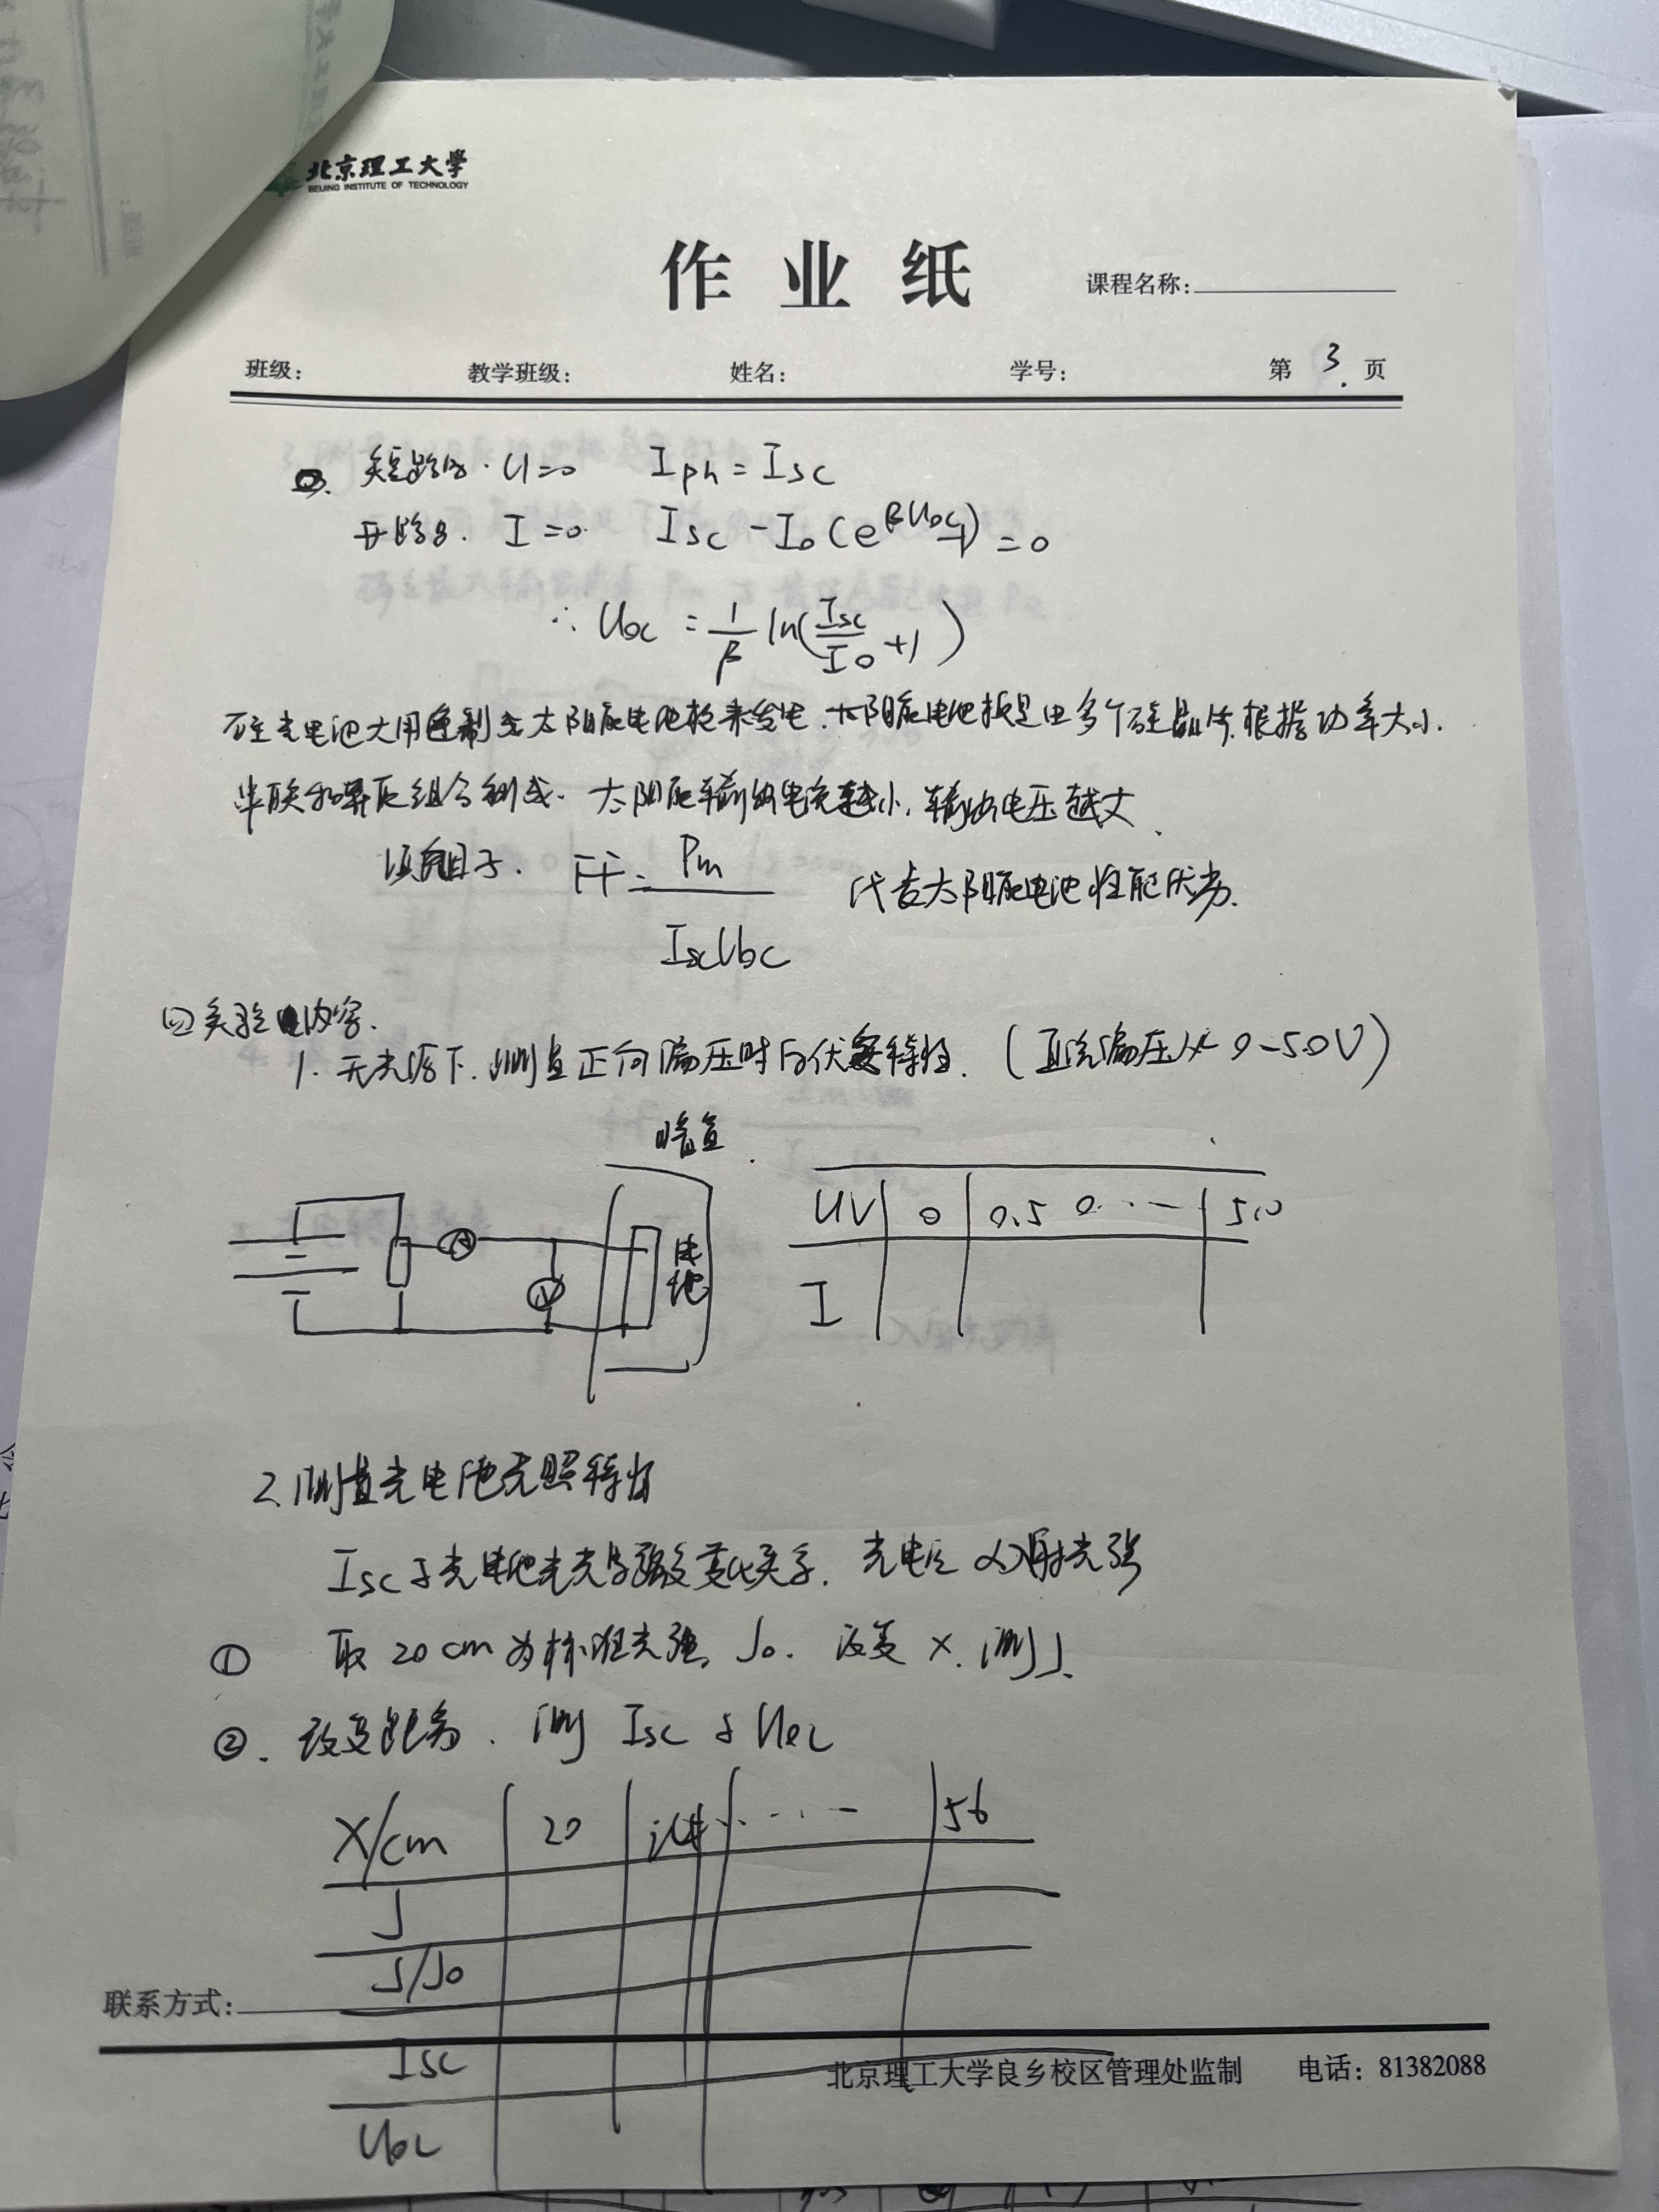 北京理工大学
BEIJING INSTITUTE OF TECHNOLOGY
作业纸
课程名称:
班级: 教学班级: 姓名: 学号: 第 3. 页
短路时. U=0 Iph = Isc
开路时. I=0. Isc - I0 (e^βUoc -1) = 0
∴ Uoc = 1/β ln(Isc/I0 +1)
硅光电池大用途制成太阳能电池板来发电. 太阳能电池板是由多个硅晶片, 根据功率大小.
串联和并联组合制成. 太阳能输出电流越小, 输出电压越大.
填充因子. FF = Pm/IscUoc 代表太阳能电池性能优劣.
四 实验内容.
1. 无光源下. 测量正向偏压时的伏安特性. (直流偏压从 0-5.0V)
暗盒.
A
V
电池
UV 0 0.5 0. ... 5.0
I
2. 测量光电池光照特性
Isc与光电池光强变化关系. 光电流 ∝ 入射光强
① 取 20 cm 为标准光强 J0. 改变 x. 测J.
②. 改变距离. 测 Isc 与 Uoc
X/cm 20 ... 56
J
J/J0
联系方式:
Isc
北京理工大学良乡校区管理处监制 电话: 81382088
Uoc